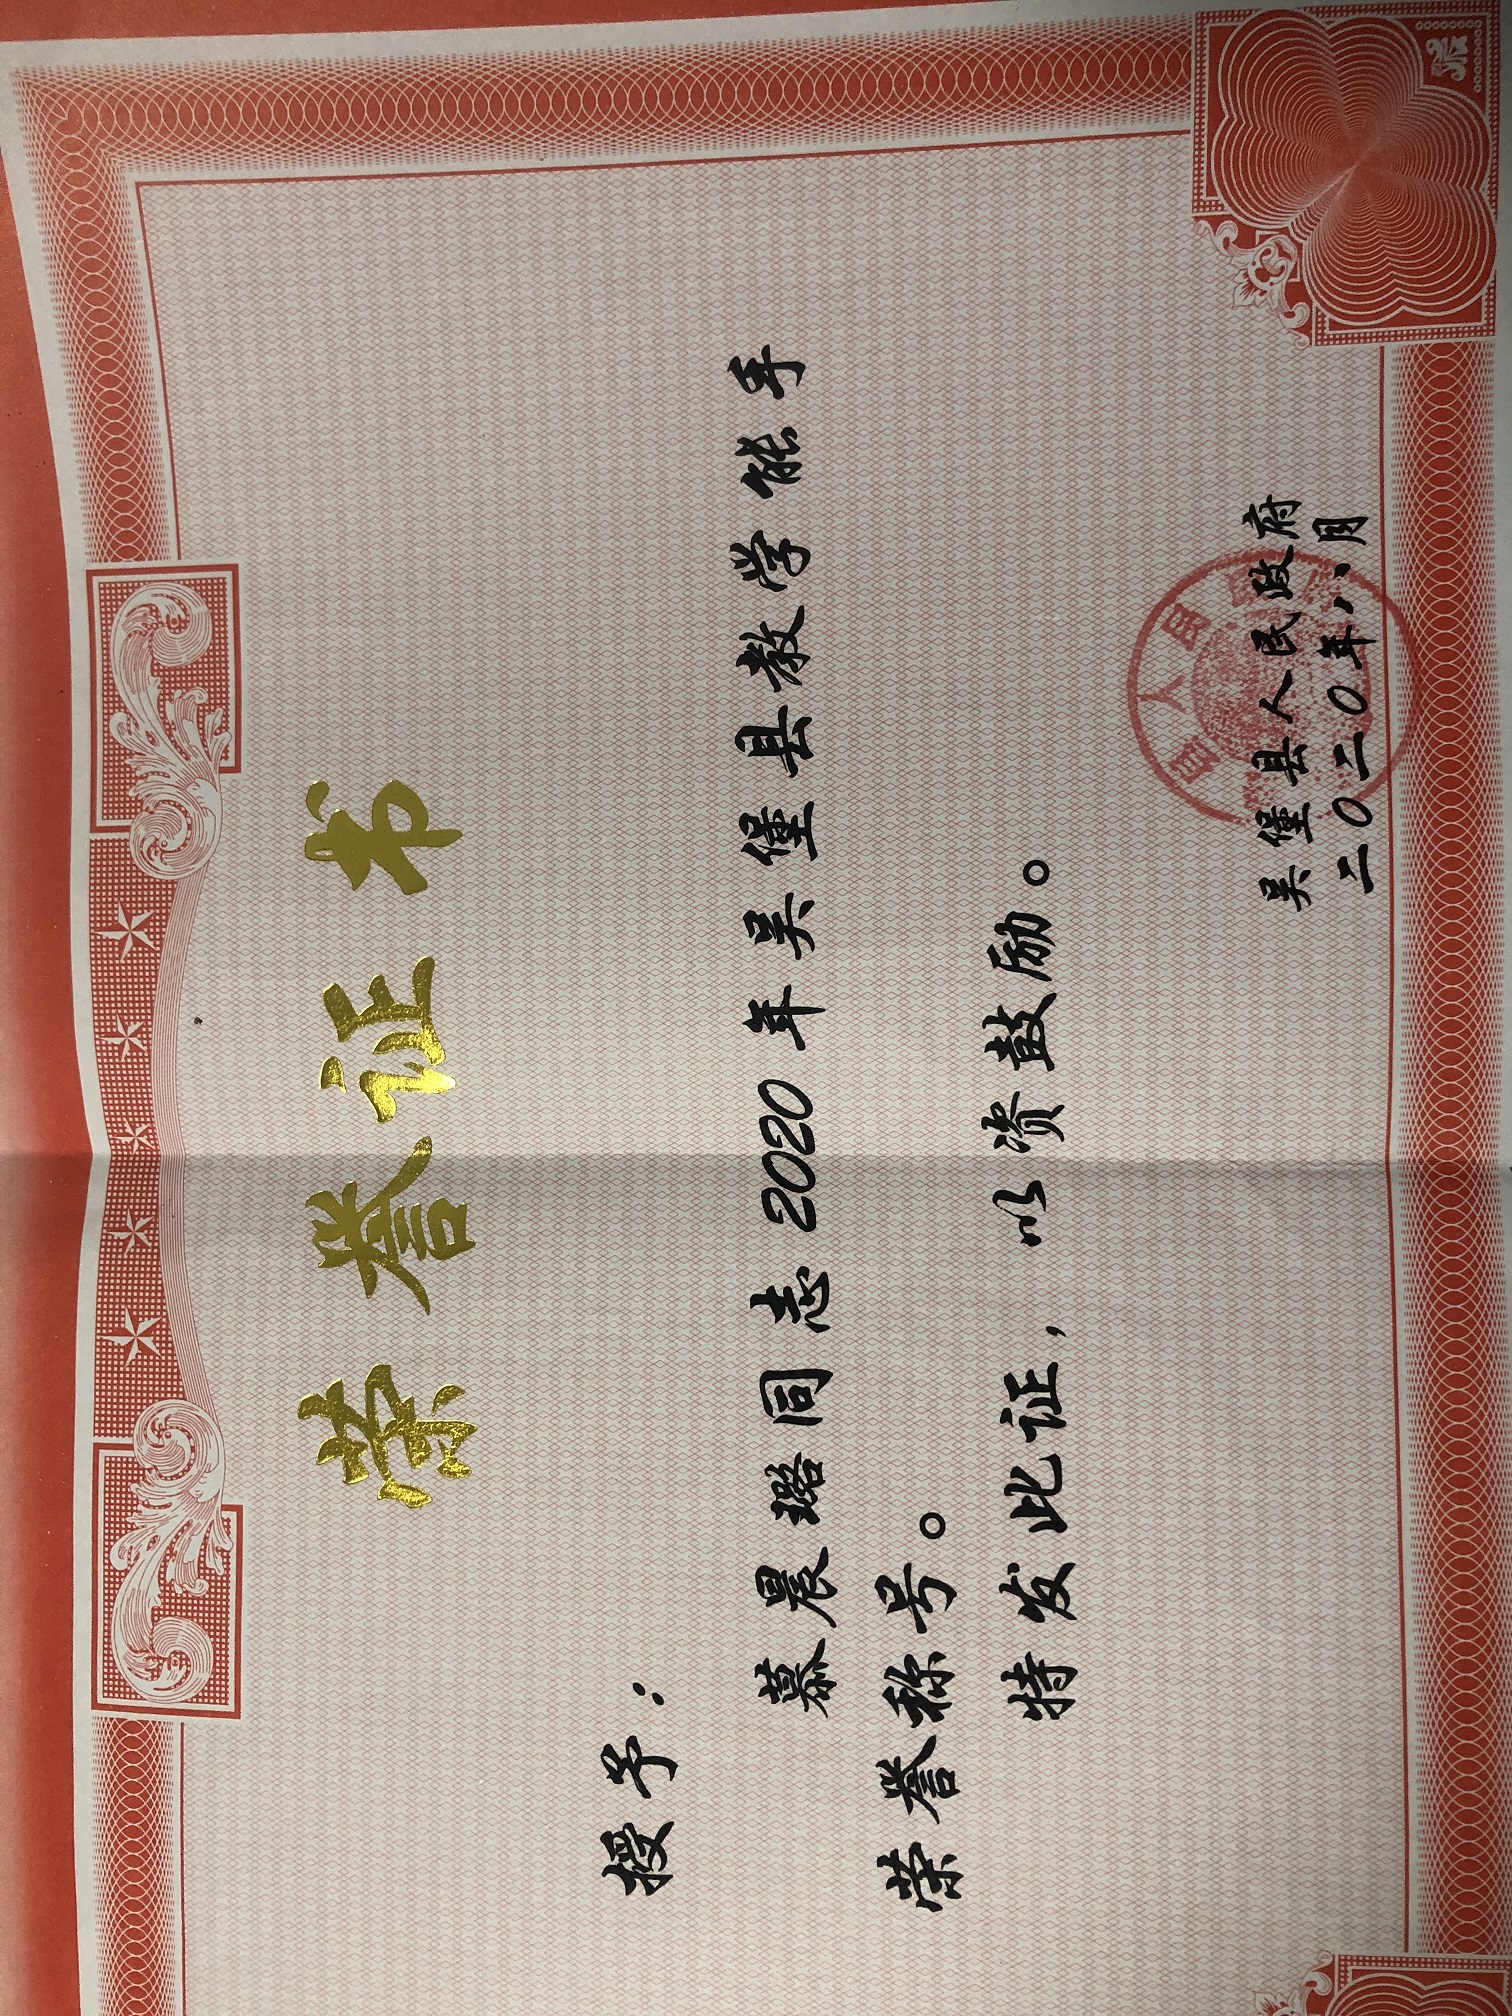 荣誉证书
授予：
慕晨璐同志2020年吴堡县教学能手
荣誉称号。
特发此证，以资鼓励。
吴堡县人民政府
二〇二〇年八月